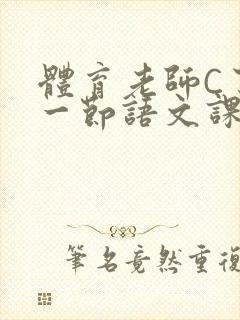 體育老師C
一節語文課
筆名竟然重復